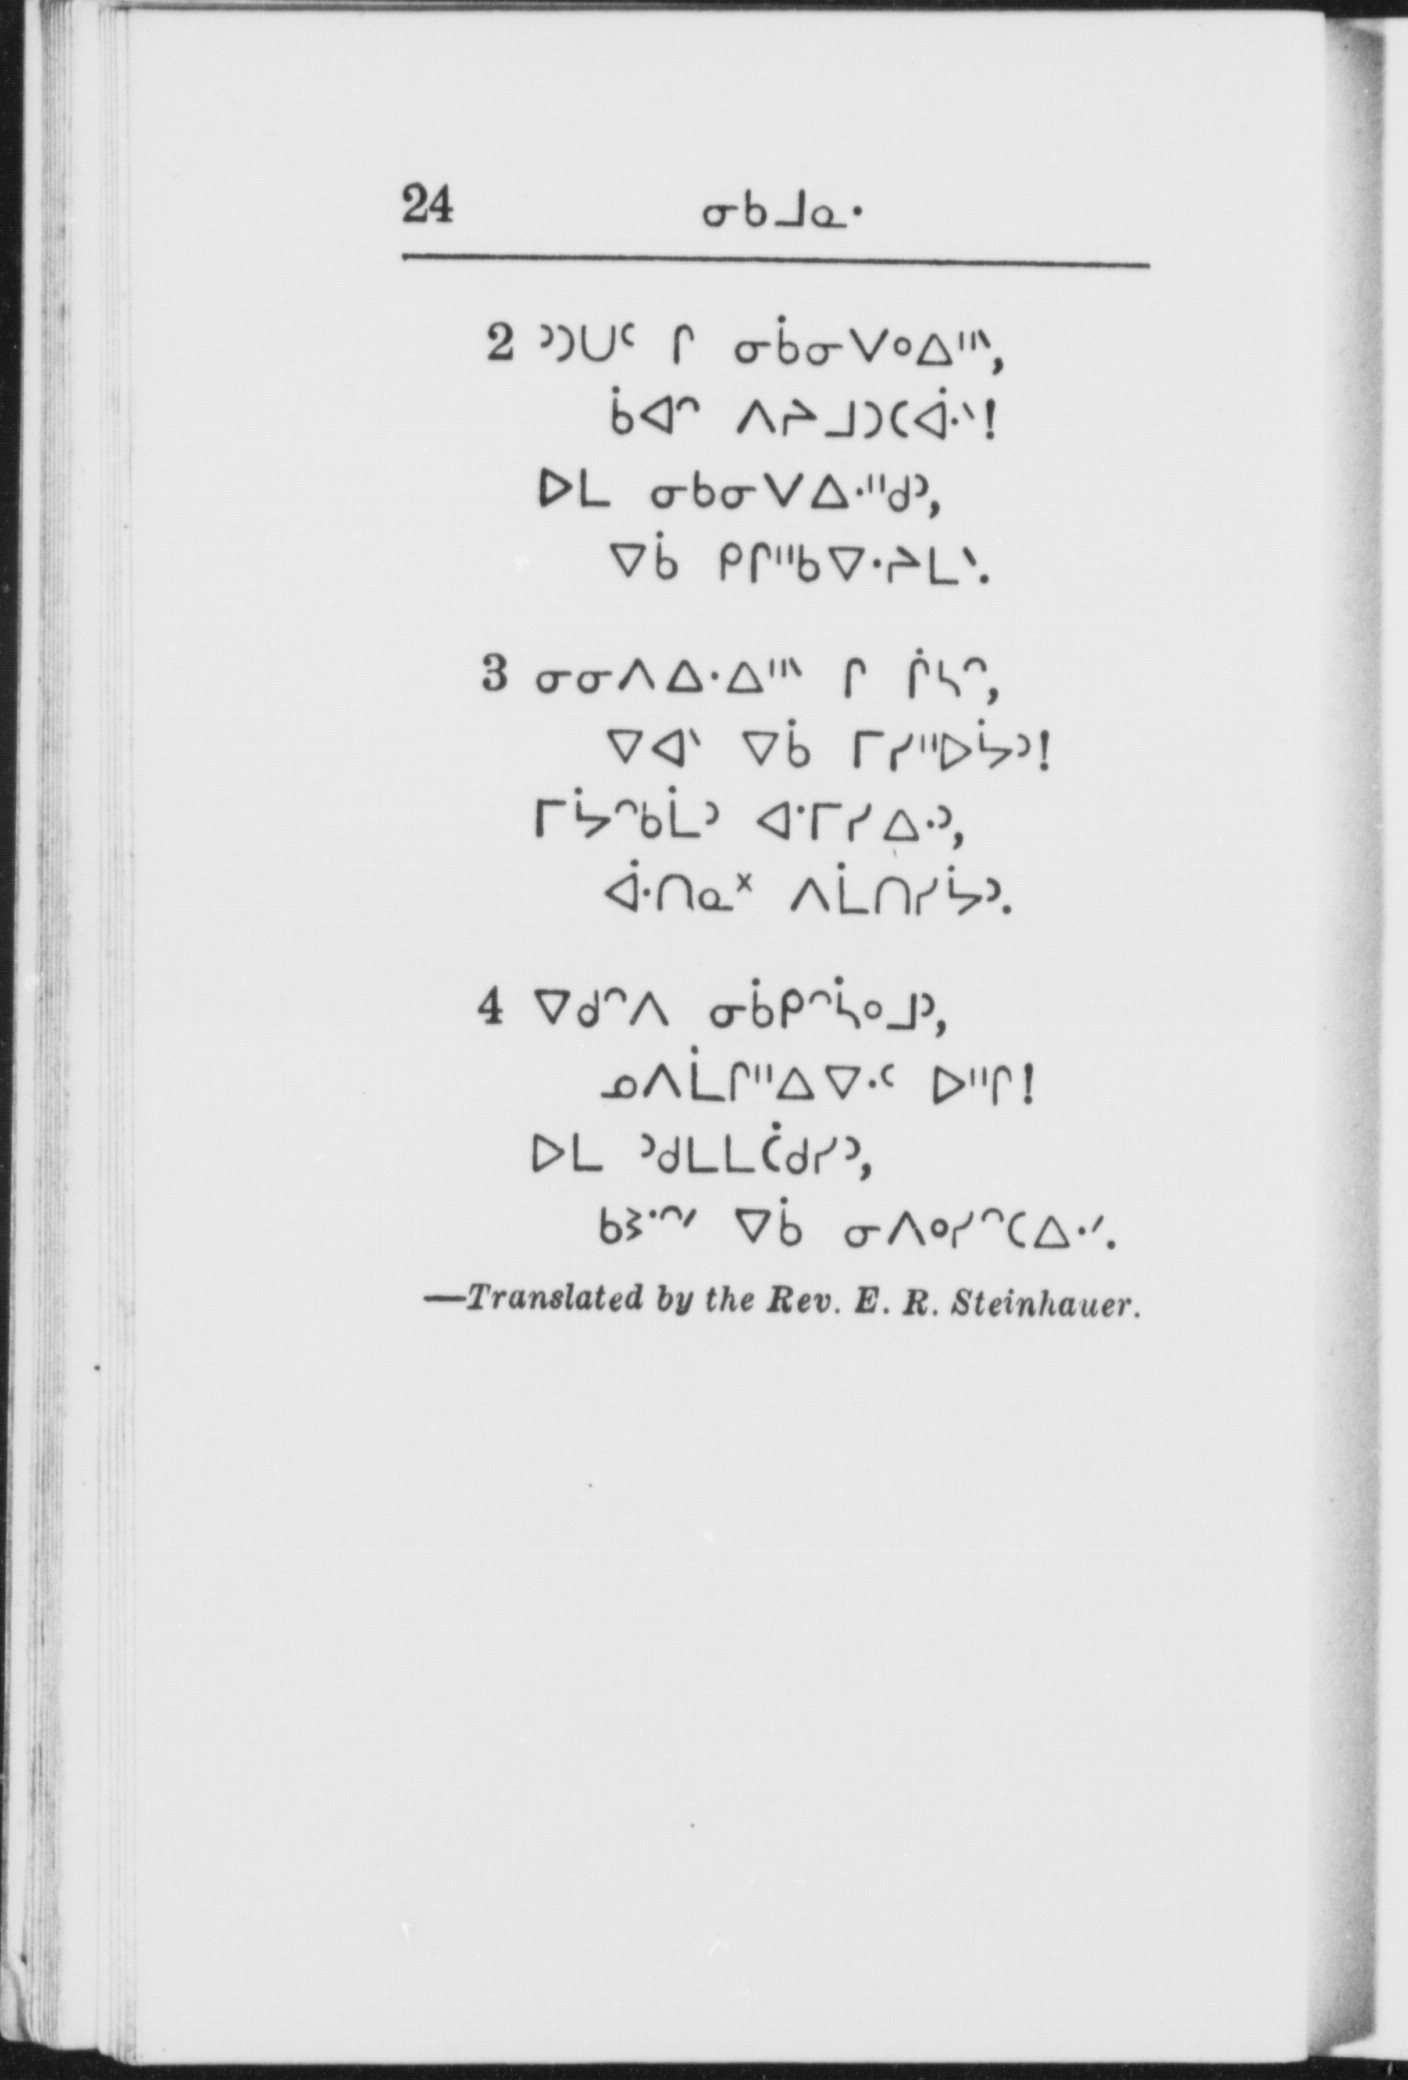 24 ᓂᑲᒧᓇ᛫
2 ᐣᑐᑌᑦ ᒋ ᓂᑳᓂᐯᐤᐃᐦᐠ,
ᑳᐊᐢ ᐱᓱᒧᑐᑕᐚᐠ!
ᐅᒪ ᓂᑲᓂᐯᐏᐦᑯᐣ,
ᐁᑳ ᑭᒋᐦᑲᐍᓱᒪᐠ.
3 ᓂᓂᐱᐏᐃᐦᐠ ᒋ ᒌᓴᐢ,
ᐁᐊᐠ ᐁᑳ ᒥᓯᐦᐅᔮᐣ!
ᒥᔮᐢᑲᒫᐣ ᐘᒥᓯᐏᐣ,
ᐚᑎᓇᕽ ᐱᒫᑎᓯᔮᐣ.
4 ᐁᑯᐢᐱ ᓂᑳᑭᐢᓵᐤᒧᐣ,
ᓄᐱᒫᒋᐦᐃᐍᑦ ᐅᐦᒋ!
ᐅᒪ ᐣᑯᒪᒪᑖᑯᓯᐣ,
ᑲ�këᐧᐢᐟ ᐁᑳ ᓂᐱᐤᓯᐢᑕᐏᐟ.
—Translated by the Rev. E. R. Steinhauer.